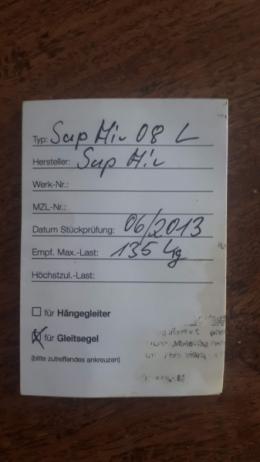 Typ: Sup Air 08 L
Hersteller: Sup Air
Werk-Nr.:
MZL-Nr.:
Datum Stückprüfung: 06/2013
Empf. Max.-Last: 135 kg
Höchstzul.-Last:
für Hängegleiter
für Gleitsegel
(bitte zutreffendes ankreuzen)